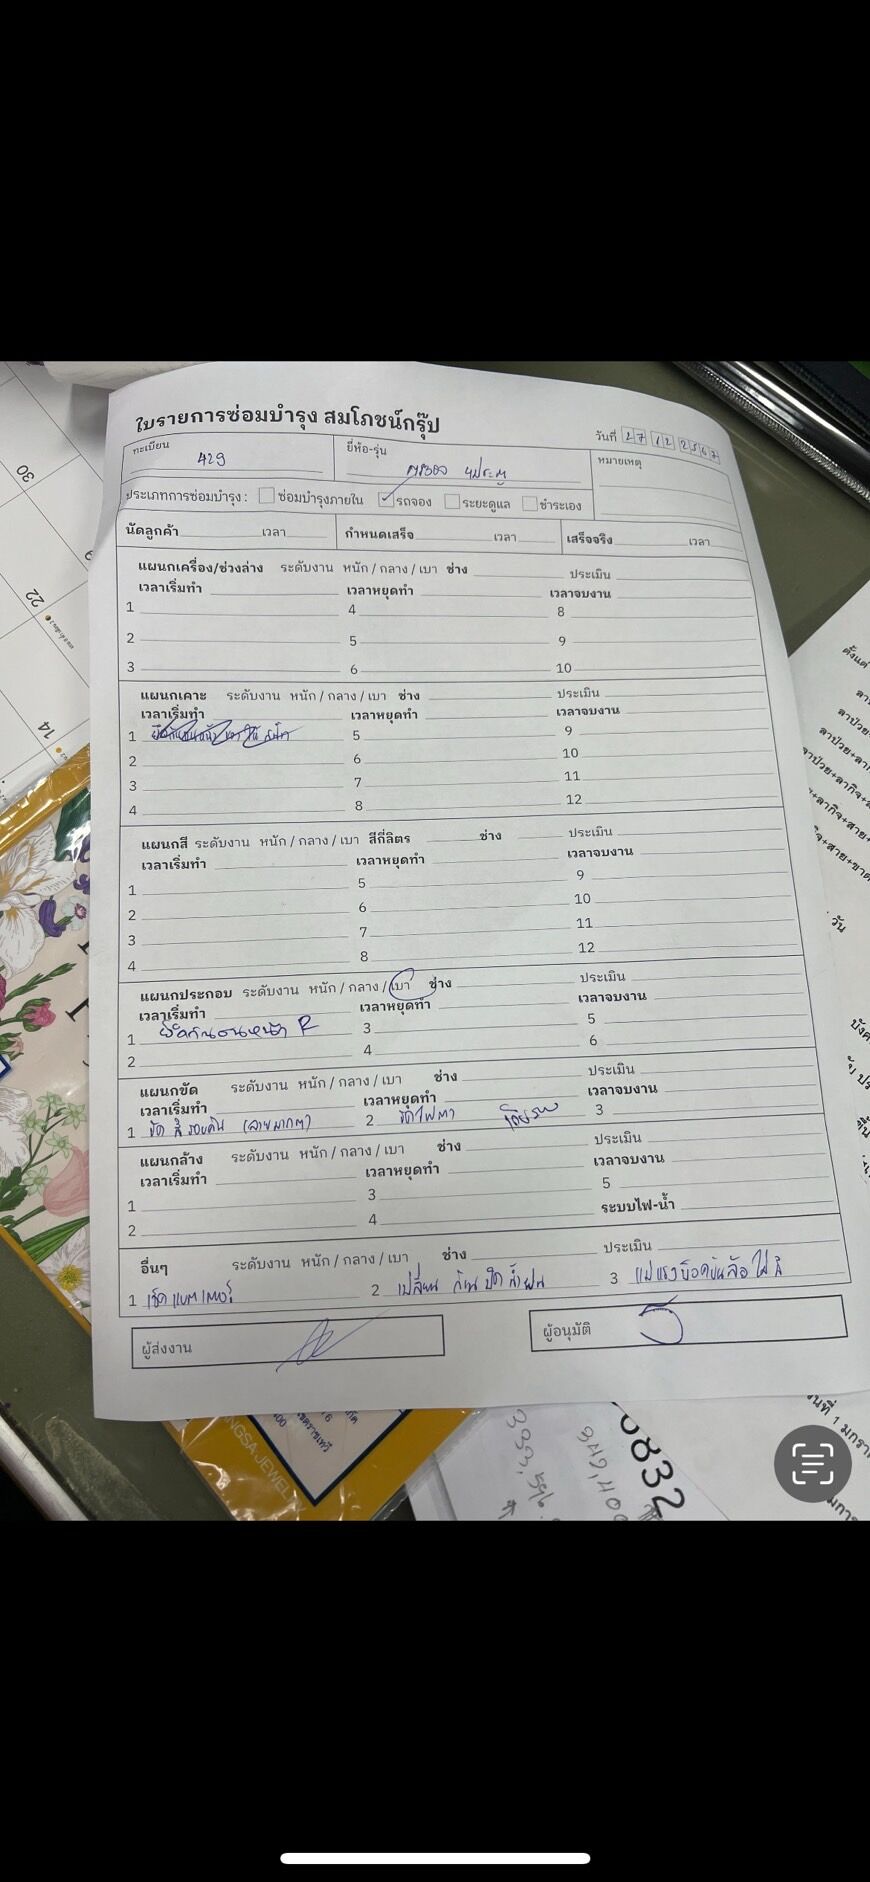 ใบรายการซ่อมบำรุง สมโภชน์กรุ๊ป
วันที่ 27 12 2567
ทะเบียน 429 ยี่ห้อ-รุ่น 4ประตู หมายเหตุ
ประเภทการซ่อมบำรุง : ซ่อมบำรุงภายใน รถจอง ระยะดูแล ชำระเอง
นัดลูกค้า เวลา กำหนดเสร็จ เวลา เสร็จจริง เวลา
แผนกเครื่อง/ช่วงล่าง ระดับงาน หนัก / กลาง / เบา ช่าง ประเมิน
เวลาเริ่มทำ เวลาหยุดทำ เวลาจบงาน
1 4 8
2 5 9
3 6 10
แผนกเคาะ ระดับงาน หนัก / กลาง / เบา ช่าง ประเมิน
เวลาเริ่มทำ เวลาหยุดทำ เวลาจบงาน
1 5 9
2 6 10
3 7 11
4 8 12
แผนกสี ระดับงาน หนัก / กลาง / เบา สีกี่ลิตร ช่าง ประเมิน
เวลาเริ่มทำ เวลาหยุดทำ เวลาจบงาน
1 5 9
2 6 10
3 7 11
4 8 12
แผนกประกอบ ระดับงาน หนัก / กลาง / เบา ช่าง ประเมิน
เวลาเริ่มทำ เวลาหยุดทำ เวลาจบงาน
1 ยึดกันชนหน้า R 3 5
2 4 6
แผนกขัด ระดับงาน หนัก / กลาง / เบา ช่าง ประเมิน
เวลาเริ่มทำ เวลาหยุดทำ เวลาจบงาน
1 ขัด สี รอบคัน (ลายมากๆ) 2 ขัดไฟตา 3
แผนกล้าง ระดับงาน หนัก / กลาง / เบา ช่าง ประเมิน
เวลาเริ่มทำ เวลาหยุดทำ เวลาจบงาน
1 3 5
2 4 ระบบไฟ-น้ำ
อื่นๆ ระดับงาน หนัก / กลาง / เบา ช่าง ประเมิน
1 เช็ค แบตเตอรี่ 2 เปลี่ยน ก้าน ปัด น้ำฝน 3 แม่แรง บ็อคขันล้อ ไม่มี
ผู้ส่งงาน ผู้อนุมัติ
30
22
14
ANGSA JEWELRY
0832